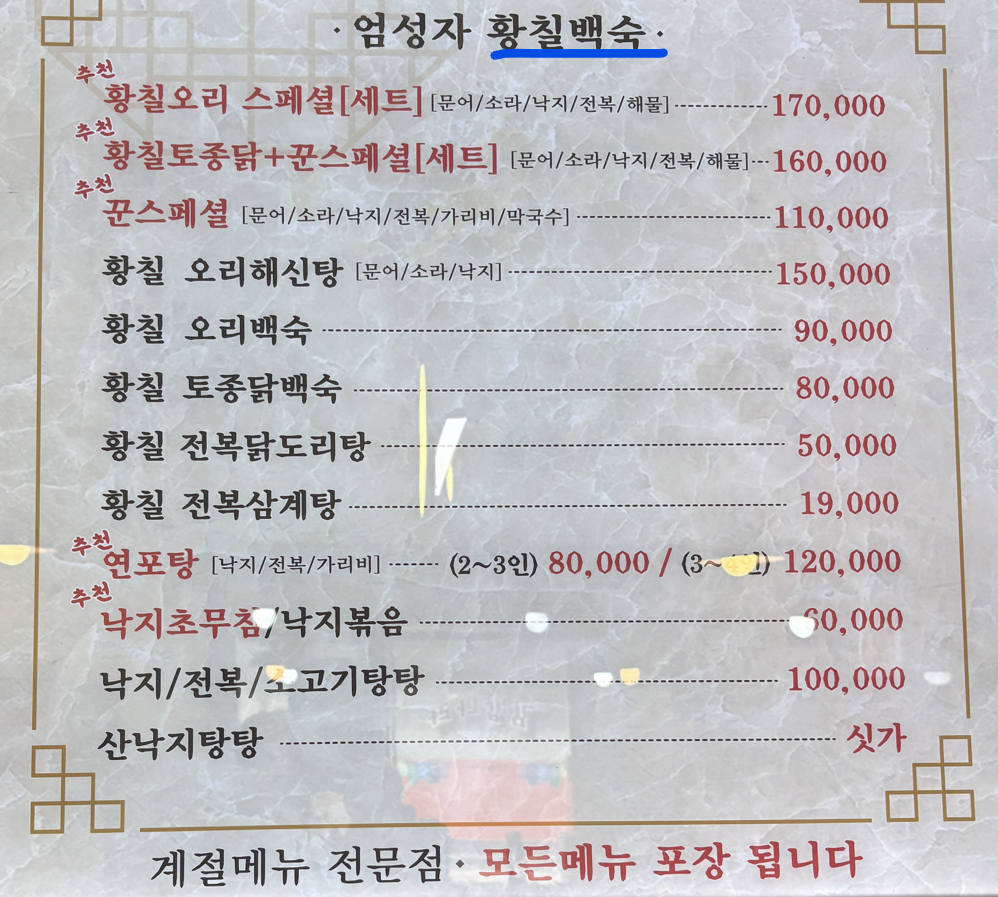 ·엄성자 황칠백숙·
추천
황칠오리 스페셜[세트] [문어/소라/낙지/전복/해물] 170,000
추천
황칠토종닭+꾼스페셜[세트] [문어/소라/낙지/전복/해물] 160,000
추천
꾼스페셜 [문어/소라/낙지/전복/가리비/막국수] 110,000
황칠 오리해신탕 [문어/소라/낙지] 150,000
황칠 오리백숙 90,000
황칠 토종닭백숙 80,000
황칠 전복닭도리탕 50,000
황칠 전복삼계탕 19,000
추천
연포탕 [낙지/전복/가리비] (2~3인) 80,000 / 120,000
추천
낙지초무침/낙지볶음 60,000
낙지/전복/소고기탕탕 100,000
산낙지탕탕 싯가
계절메뉴 전문점· 모든메뉴 포장 됩니다